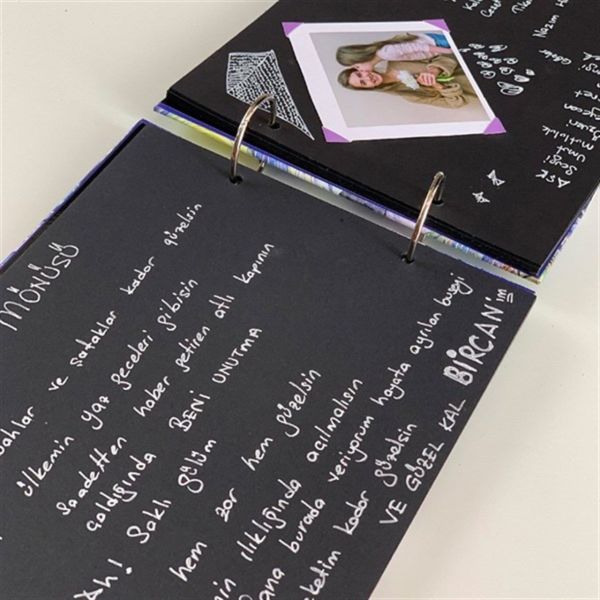 MÖNÜSÜ
ahlar ve şafaklar kadar güzelsin
ülkemin yaz geceleri gibisin
saadetten haber getiren atlı kapının
çaldığında BENİ UNUTMA
Ah! Saklı gülüm
hem zor hem güzelsin
ılıklığında açılmalısın
ana burada veriyorum hayata ayrılan buseyi
ketim kadar güzelsin
VE GÜZEL KAL BİRCAN'ım
Nazım H
AŞK
Sevgi
Umut
mutluluk